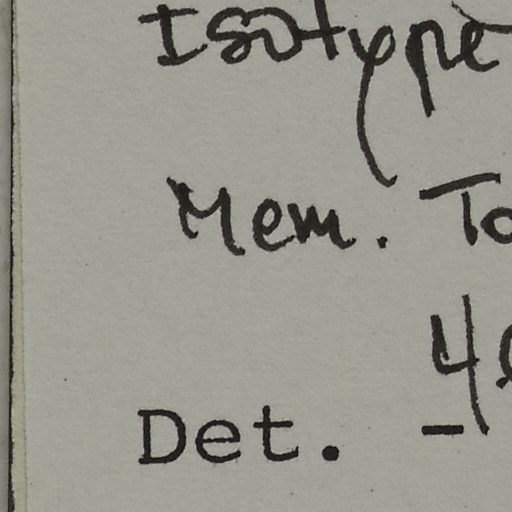 Isotype
Mem. To
4
Det. -